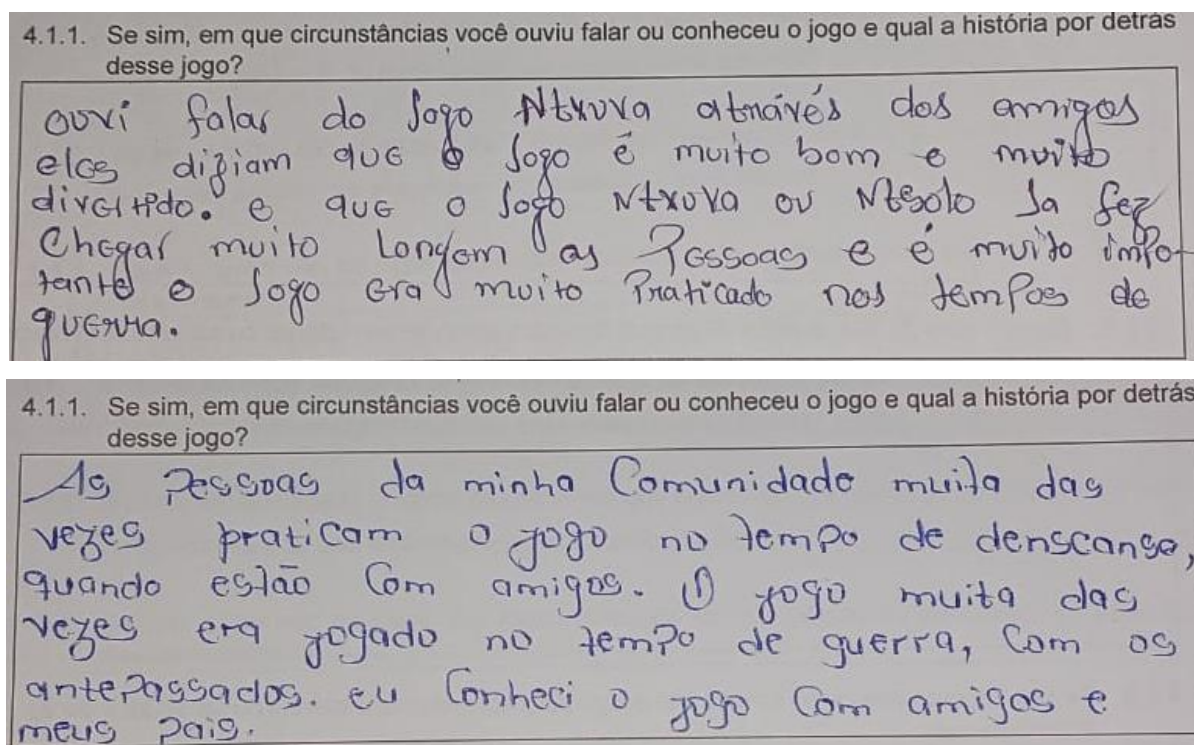 4.1.1. Se sim, em que circunstâncias você ouviu falar ou conheceu o jogo e qual a história por detrás
desse jogo?
ouvi falar do Jogo Ntxuva atnávés dos amigos
eles diziam que o Jogo é muito bom e muito
divertido. e que o Jogo Ntxuva ou Ntsolo Ja fez
Chegar muito Longem as Pessoas e é muito impo-
tante o Jogo era muito Praticado nos tempos de
guerra.
4.1.1. Se sim, em que circunstâncias você ouviu falar ou conheceu o jogo e qual a história por detrás
desse jogo?
As Pessoas da minha Comunidade muita das
vezes praticam o jogo no tempo de denscanso,
quando estão Com amigos. O jogo muita das
vezes era jogado no tempo de guerra, Com os
antepassados. eu Conheci o jogo Com amigos e
meus pais.